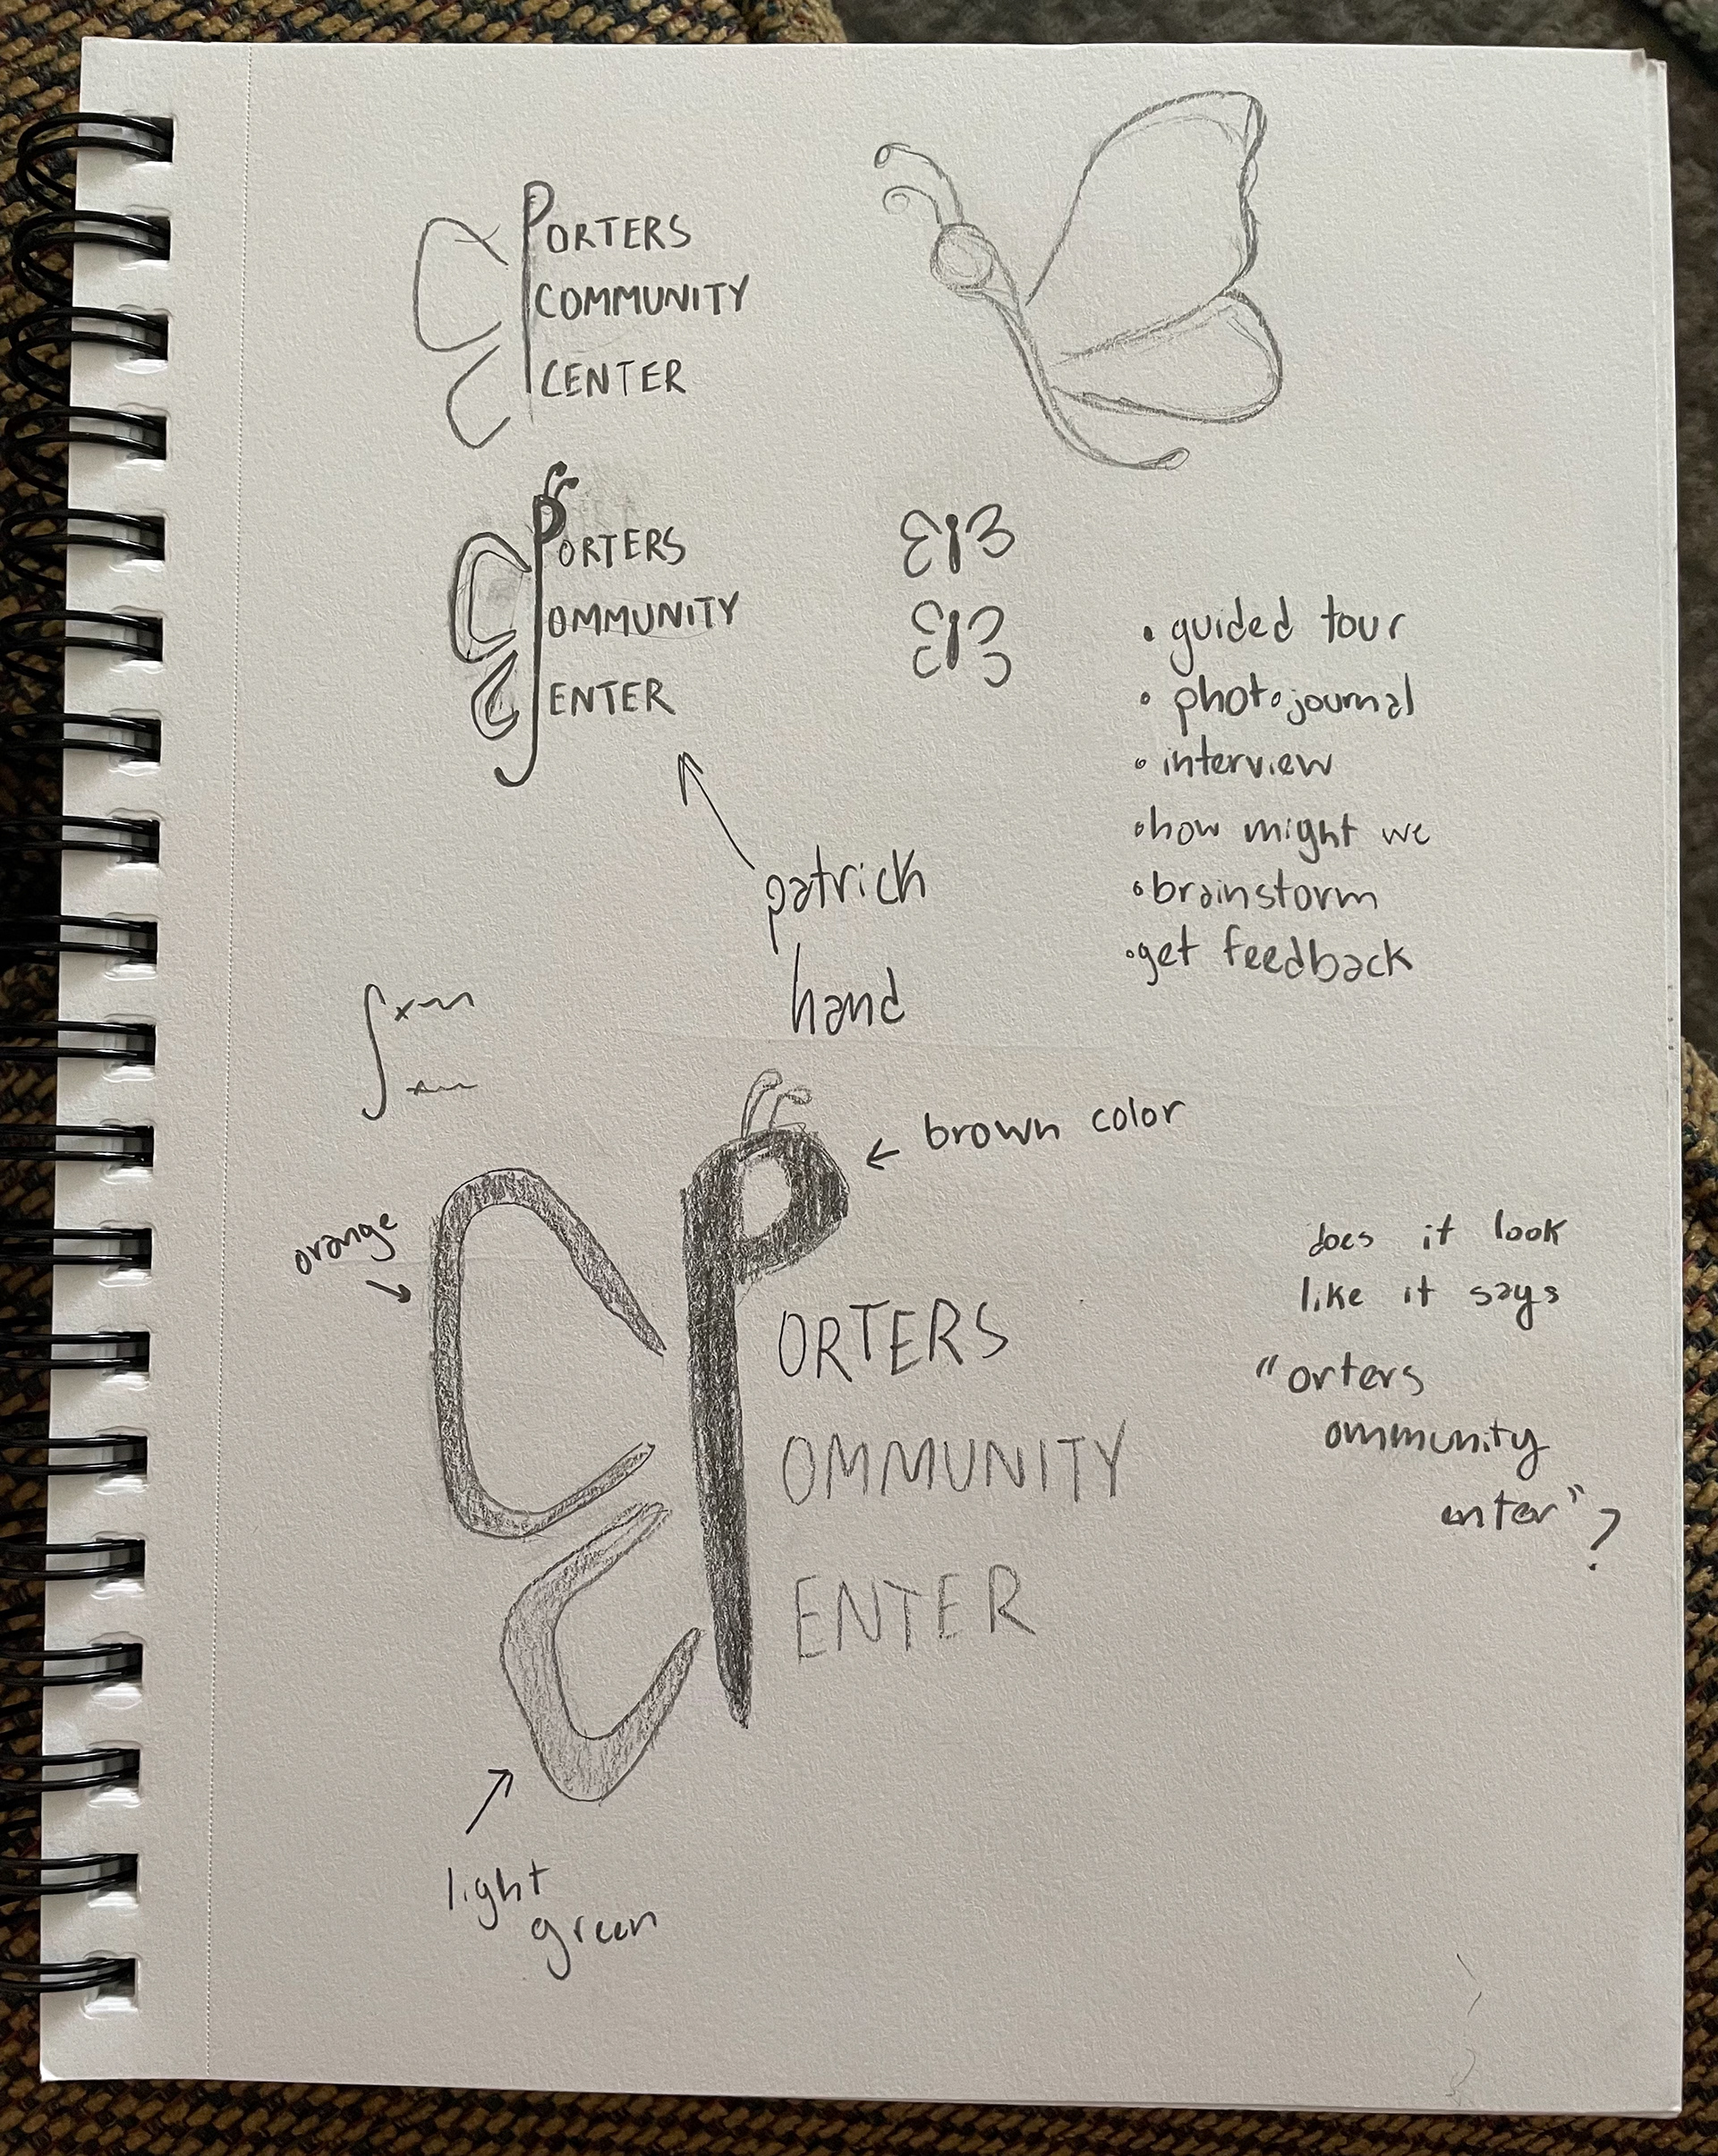 PORTERS
COMMUNITY
CENTER
PORTERS
OMMUNITY
ENTER
patrick
hand
• guided tour
• photojournal
• interview
• how might we
• brainstorm
• get feedback
← brown color
orange
P
ORTERS
OMMUNITY
ENTER
light
green
does it look
like it says
"orters
ommunity
enter"?